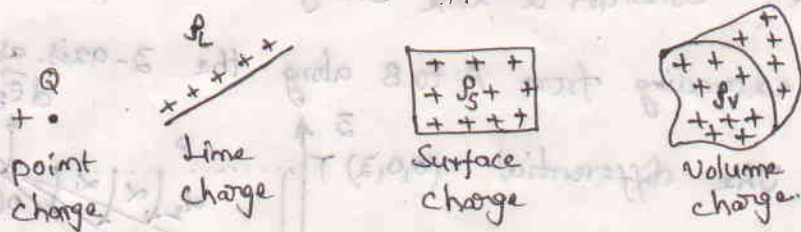 Q
+ •
point
charge
ρL
+ + + + +
Line
charge
+ + +
+ ρS + +
+ + + +
Surface
charge
+ +
+ + +
+ + +
ρv
+ + +
+ +
volume
charge.